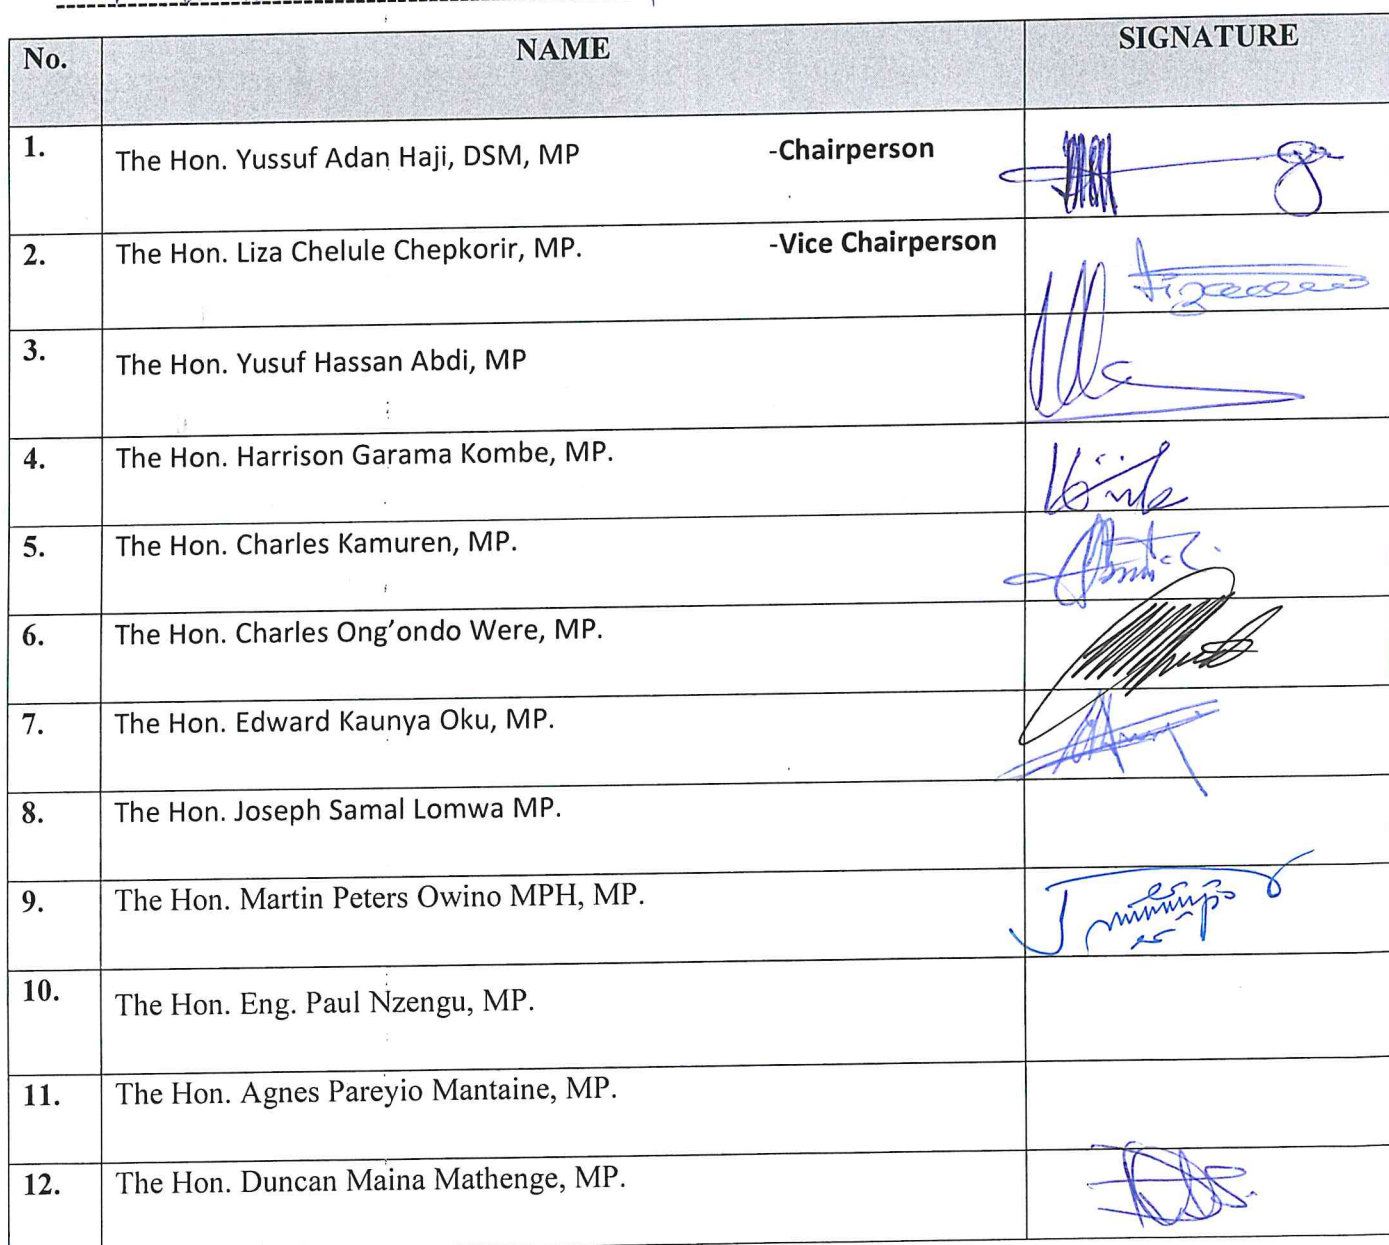 No. NAME SIGNATURE
1. The Hon. Yussuf Adan Haji, DSM, MP -Chairperson
2. The Hon. Liza Chelule Chepkorir, MP. -Vice Chairperson
3. The Hon. Yusuf Hassan Abdi, MP
4. The Hon. Harrison Garama Kombe, MP.
5. The Hon. Charles Kamuren, MP.
6. The Hon. Charles Ong’ondo Were, MP.
7. The Hon. Edward Kaunya Oku, MP.
8. The Hon. Joseph Samal Lomwa MP.
9. The Hon. Martin Peters Owino MPH, MP.
10. The Hon. Eng. Paul Nzengu, MP.
11. The Hon. Agnes Pareyio Mantaine, MP.
12. The Hon. Duncan Maina Mathenge, MP.